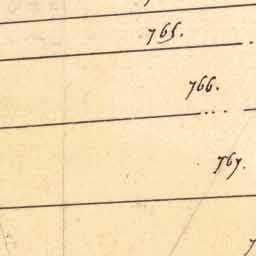 765.
766.
767.